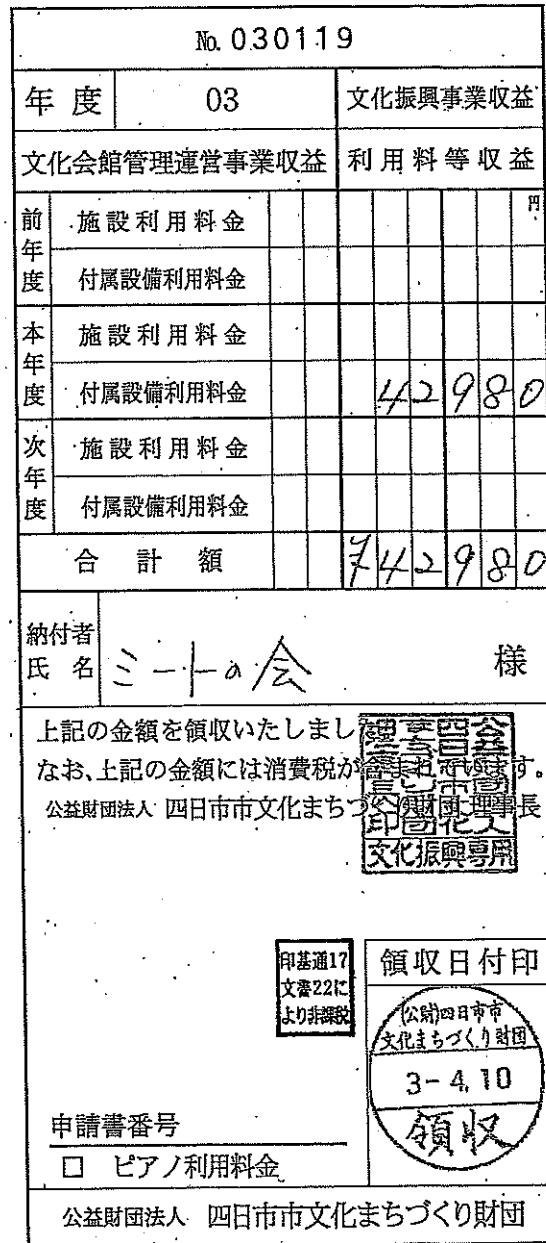 No. 030119
年度 03 文化振興事業収益
文化会館管理運営事業収益 利用料等収益
前年度 施設利用料金 円
付属設備利用料金
本年度 施設利用料金
付属設備利用料金 42980
次年度 施設利用料金
付属設備利用料金
合計額 ¥42980
納付者氏名 ミートの会 様
上記の金額を領収いたしました
なお、上記の金額には消費税が含まれています。
公益財団法人 四日市市文化まちづくり財団 理事長
文化振興専用
印基通17
文書22に
より非課税
領収日付印
(公財)四日市市
文化まちづくり財団
3-4.10
領収
申請書番号
□ ピアノ利用料金
公益財団法人 四日市市文化まちづくり財団